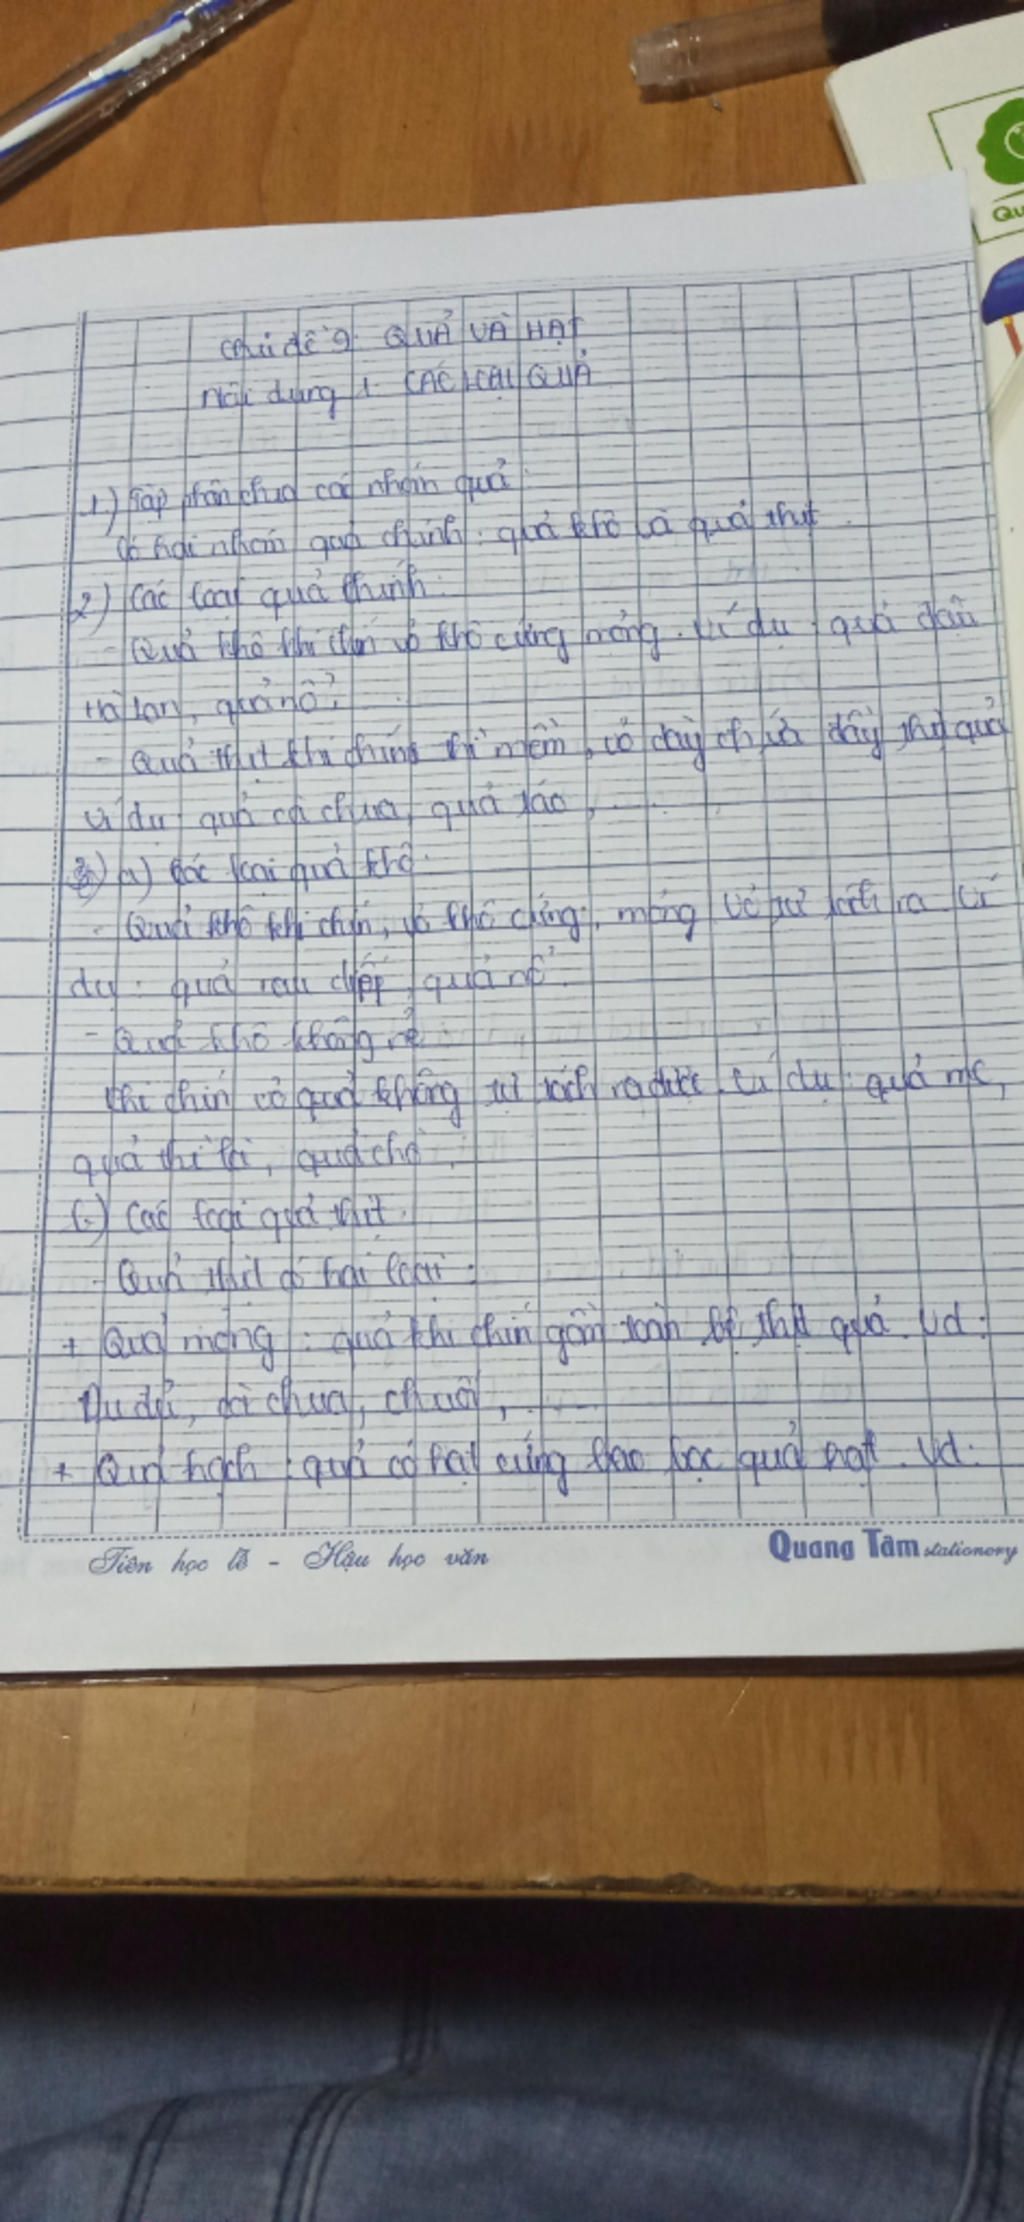 Qu
Chủ đề 9: QUẢ VÀ HẠT
Nội dung 1: CÁC LOẠI QUẢ
1) Tập phân chia các nhóm quả
Có hai nhóm quả chính: quả khô và quả thịt.
2) Các loại quả chính.
- Quả khô khi chín vỏ khô cứng mỏng. Ví dụ: quả đậu
Hà Lan, quả nổ,
- Quả thịt khi chín thì mềm, vỏ dày chứa đầy thịt quả
ví dụ: quả cà chua, quả táo, ...
3) a) Các loại quả khô.
- Quả khô khi chín, vỏ khô cứng, mỏng vỏ tự tách ra Ví
dụ: quả rau diếp, quả nổ
- Quả khô không nẻ
khi chín vỏ quả không tự tách ra được. Ví dụ: quả me,
quả thì là, quả chò,
b) Các loại quả thịt.
- Quả thịt có hai loại:
+ Quả mọng: quả khi chín gồm toàn bộ thịt quả. Vd:
Đu đủ, cà chua, chuối, ...
+ Quả hạch: quả có hạt cứng bao bọc quả hạt. Vd:
Tiên học lễ - Hậu học văn
Quang Tâm stationery